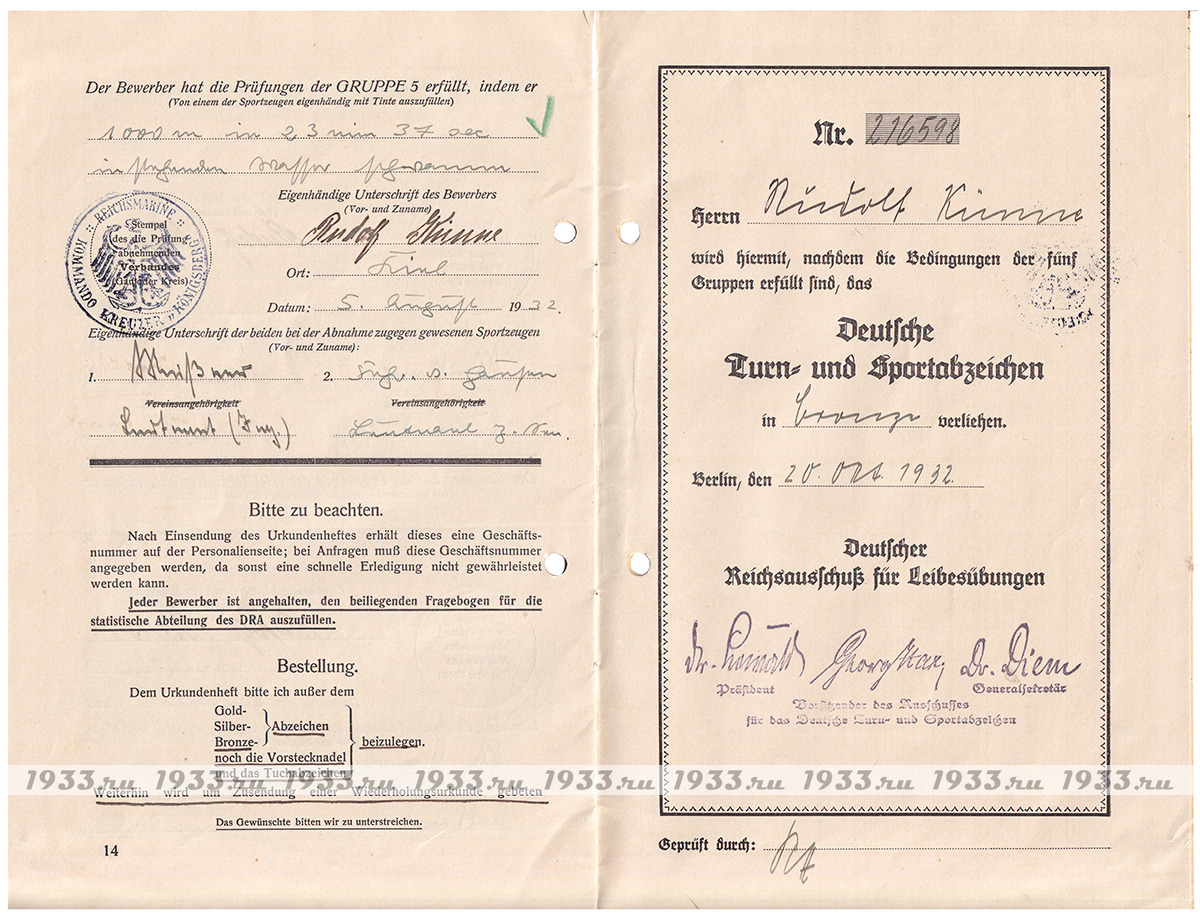 Der Bewerber hat die Prüfungen der GRUPPE 5 erfüllt, indem er
(Von einem der Sportzeugen eigenhändig mit Tinte auszufüllen)
1000 m in 23 min 37 sec
in stehenden Wasser schwamm
Eigenhändige Unterschrift des Bewerbers
(Vor- und Zuname)
Rudolf Künne
REICHSMARINE
KOMMANDO KREUZER "KÖNIGSBERG"
Stempel
des die Prüfung
abnehmenden
Verbandes
(Gau oder Kreis)
Ort: Kiel
Datum: 5. August 1932.
Eigenhändige Unterschrift der beiden bei der Abnahme zugegen gewesenen Sportzeugen
(Vor- und Zuname):
1. 2. Frhr. v.
Vereinsangehörigkeit Vereinsangehörigkeit
Leutnant (Ing.) Leutnant z. See.
Bitte zu beachten.
Nach Einsendung des Urkundenheftes erhält dieses eine Geschäfts-
nummer auf der Personalienseite; bei Anfragen muß diese Geschäftsnummer
angegeben werden, da sonst eine schnelle Erledigung nicht gewährleistet
werden kann.
Jeder Bewerber ist angehalten, den beiliegenden Fragebogen für die
statistische Abteilung des DRA auszufüllen.
Bestellung.
Dem Urkundenheft bitte ich außer dem
Gold-
Silber- Abzeichen
Bronze- beizulegen.
noch die Vorstecknadel
und das Tuchabzeichen
Weiterhin wird um Zusendung einer Wiederholungsurkunde gebeten
Das Gewünschte bitten wir zu unterstreichen.
14
Nr. 216598
Herrn Rudolf Künne
wird hiermit, nachdem die Bedingungen der fünf
Gruppen erfüllt sind, das
Deutsche
Turn- und Sportabzeichen
in bronze verliehen.
Berlin, den 20. Okt. 1932.
Deutscher
Reichsausschuß für Leibesübungen
Dr. Lewald Georg Hax, Dr. Diem
Präsident Generalsekretär
Vorsitzender des Ausschusses
für das Deutsche Turn- und Sportabzeichen
Geprüft durch:
1933.ru 1933.ru 1933.ru 1933.ru 1933.ru 1933.ru 1933.ru 1933.ru 1933.ru